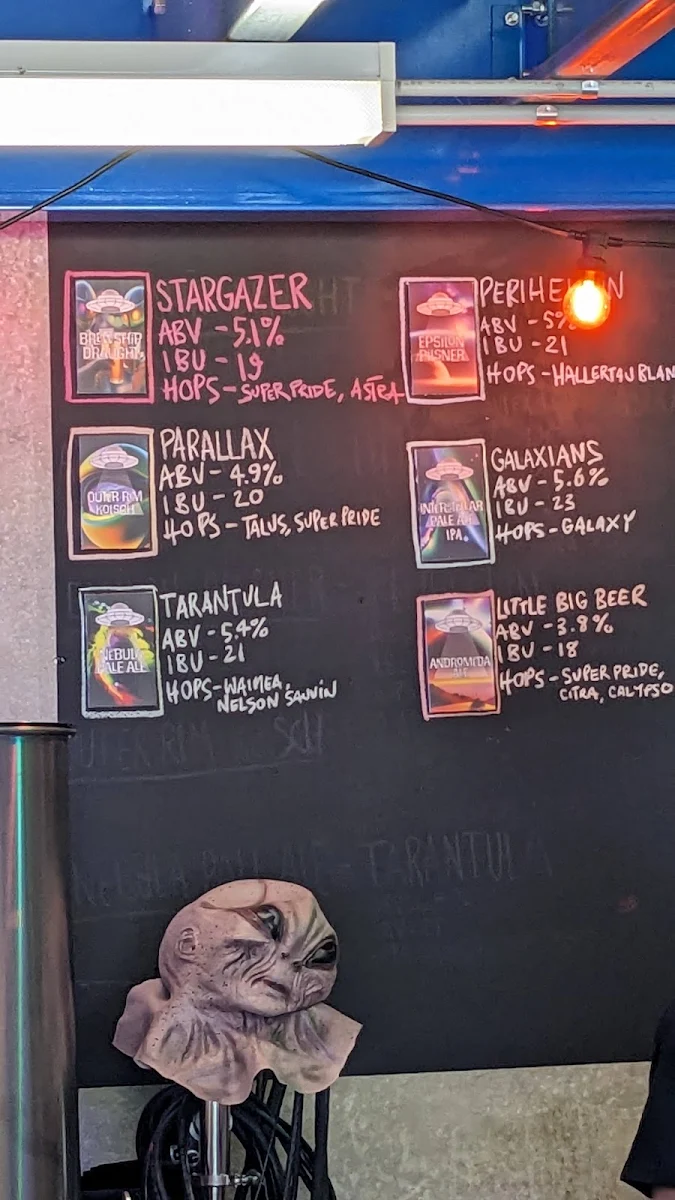 STARGAZER
ABV - 5.1%
IBU - 19
HOPS - SUPER PRIDE, ASTRA
BREW SHIP
DRAUGHT
PARALLAX
ABV - 4.9%
IBU - 20
HOPS - TALUS, SUPER PRIDE
OUTER RIM
KOLSCH
TARANTULA
ABV - 5.4%
IBU - 21
HOPS - WAIMEA,
NELSON SAUVIN
NEBULA
PALE ALE
ABV - 5%
IBU - 21
HOPS - HALLERTAU BLAN
EPSILON
PILSNER
GALAXIANS
ABV - 5.6%
IBU - 23
HOPS - GALAXY
INTERSTELLAR
PALE ALE
IPA
LITTLE BIG BEER
ABV - 3.8%
IBU - 18
HOPS - SUPER PRIDE,
CITRA, CALYPSO
ANDROMEDA
ALE
OUTER RIM
NEBULA PALE ALE - TARANTULA